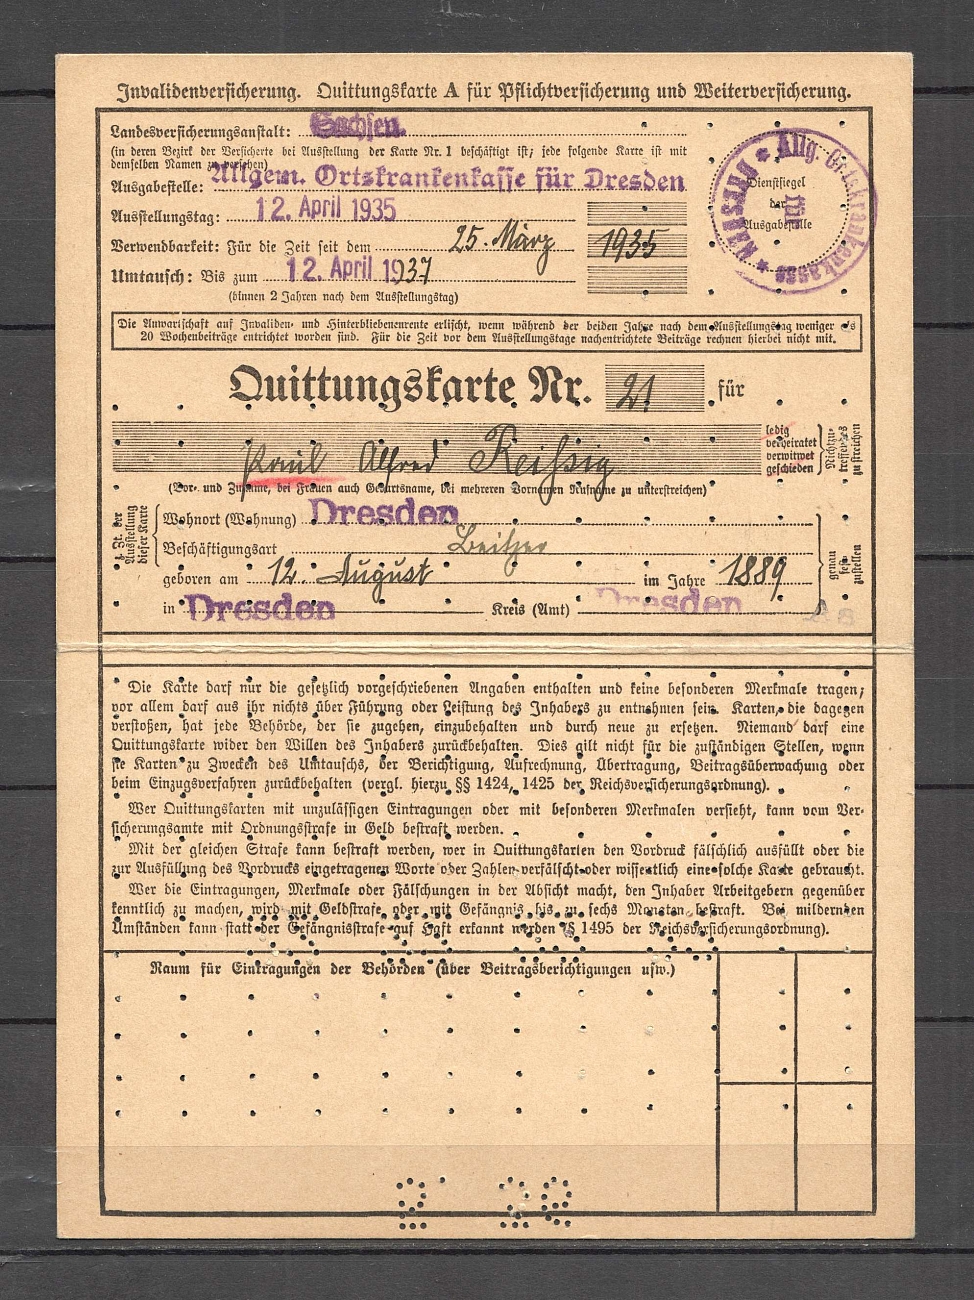 Invalidenversicherung. Quittungskarte A für Pflichtversicherung und Weiterversicherung.
Landesversicherungsanstalt: Sachsen.
(in deren Bezirk der Versicherte bei Ausstellung der Karte Nr. 1 beschäftigt ist; jede folgende Karte ist mit
demselben Namen zu versehen)
Ausgabestelle: Allgem. Ortskrankenkasse für Dresden
Ausstellungstag: 12. April 1935
Verwendbarkeit: Für die Zeit seit dem 25. März 1935
Umtausch: Bis zum 12. April 1937
(binnen 2 Jahren nach dem Ausstellungstag)
Allg. Ortskrankenkasse * DRESDEN *
Dienstsiegel
der
Ausgabestelle
Die Anwartschaft auf Invaliden- und Hinterbliebenenrente erlischt, wenn während der beiden Jahre nach dem Ausstellungstag weniger als
20 Wochenbeiträge entrichtet worden sind. Für die Zeit vor dem Ausstellungstage nachentrichtete Beiträge rechnen hierbei nicht mit.
Quittungskarte Nr. 21 für
Paul Alfred Reißig
ledig
verheiratet
verwitwet
geschieden
Nichtzu-
treffendes
zu streichen
(Vor- und Zuname, bei Frauen auch Geburtsname, bei mehreren Vornamen Rufname zu unterstreichen)
z. Zt. der
Ausstellung
dieser Karte
Wohnort (Wohnung) Dresden
Beschäftigungsart
geboren am 12. August im Jahre 1889
in Dresden Kreis (Amt) Dresden
genau
fest-
zustellen
Die Karte darf nur die gesetzlich vorgeschriebenen Angaben enthalten und keine besonderen Merkmale tragen;
vor allem darf aus ihr nichts über Führung oder Leistung des Inhabers zu entnehmen sein. Karten, die dagegen
verstoßen, hat jede Behörde, der sie zugehen, einzubehalten und durch neue zu ersetzen. Niemand darf eine
Quittungskarte wider den Willen des Inhabers zurückbehalten. Dies gilt nicht für die zuständigen Stellen, wenn
sie Karten zu Zwecken des Umtauschs, der Berichtigung, Aufrechnung, Übertragung, Beitragsüberwachung oder
beim Einzugsverfahren zurückbehalten (vergl. hierzu §§ 1424, 1425 der Reichsversicherungsordnung).
Wer Quittungskarten mit unzulässigen Eintragungen oder mit besonderen Merkmalen versieht, kann vom Ver-
sicherungsamte mit Ordnungsstrafe in Geld bestraft werden.
Mit der gleichen Strafe kann bestraft werden, wer in Quittungskarten den Vordruck fälschlich ausfüllt oder die
zur Ausfüllung des Vordrucks eingetragenen Worte oder Zahlen verfälscht oder wissentlich eine solche Karte gebraucht.
Wer die Eintragungen, Merkmale oder Fälschungen in der Absicht macht, den Inhaber Arbeitgebern gegenüber
kenntlich zu machen, wird mit Geldstrafe oder mit Gefängnis bis zu sechs Monaten bestraft. Bei mildernden
Umständen kann statt der Gefängnisstrafe auf Haft erkannt werden (§ 1495 der Reichsversicherungsordnung).
Raum für Eintragungen der Behörden (über Beitragsberichtigungen usw.)